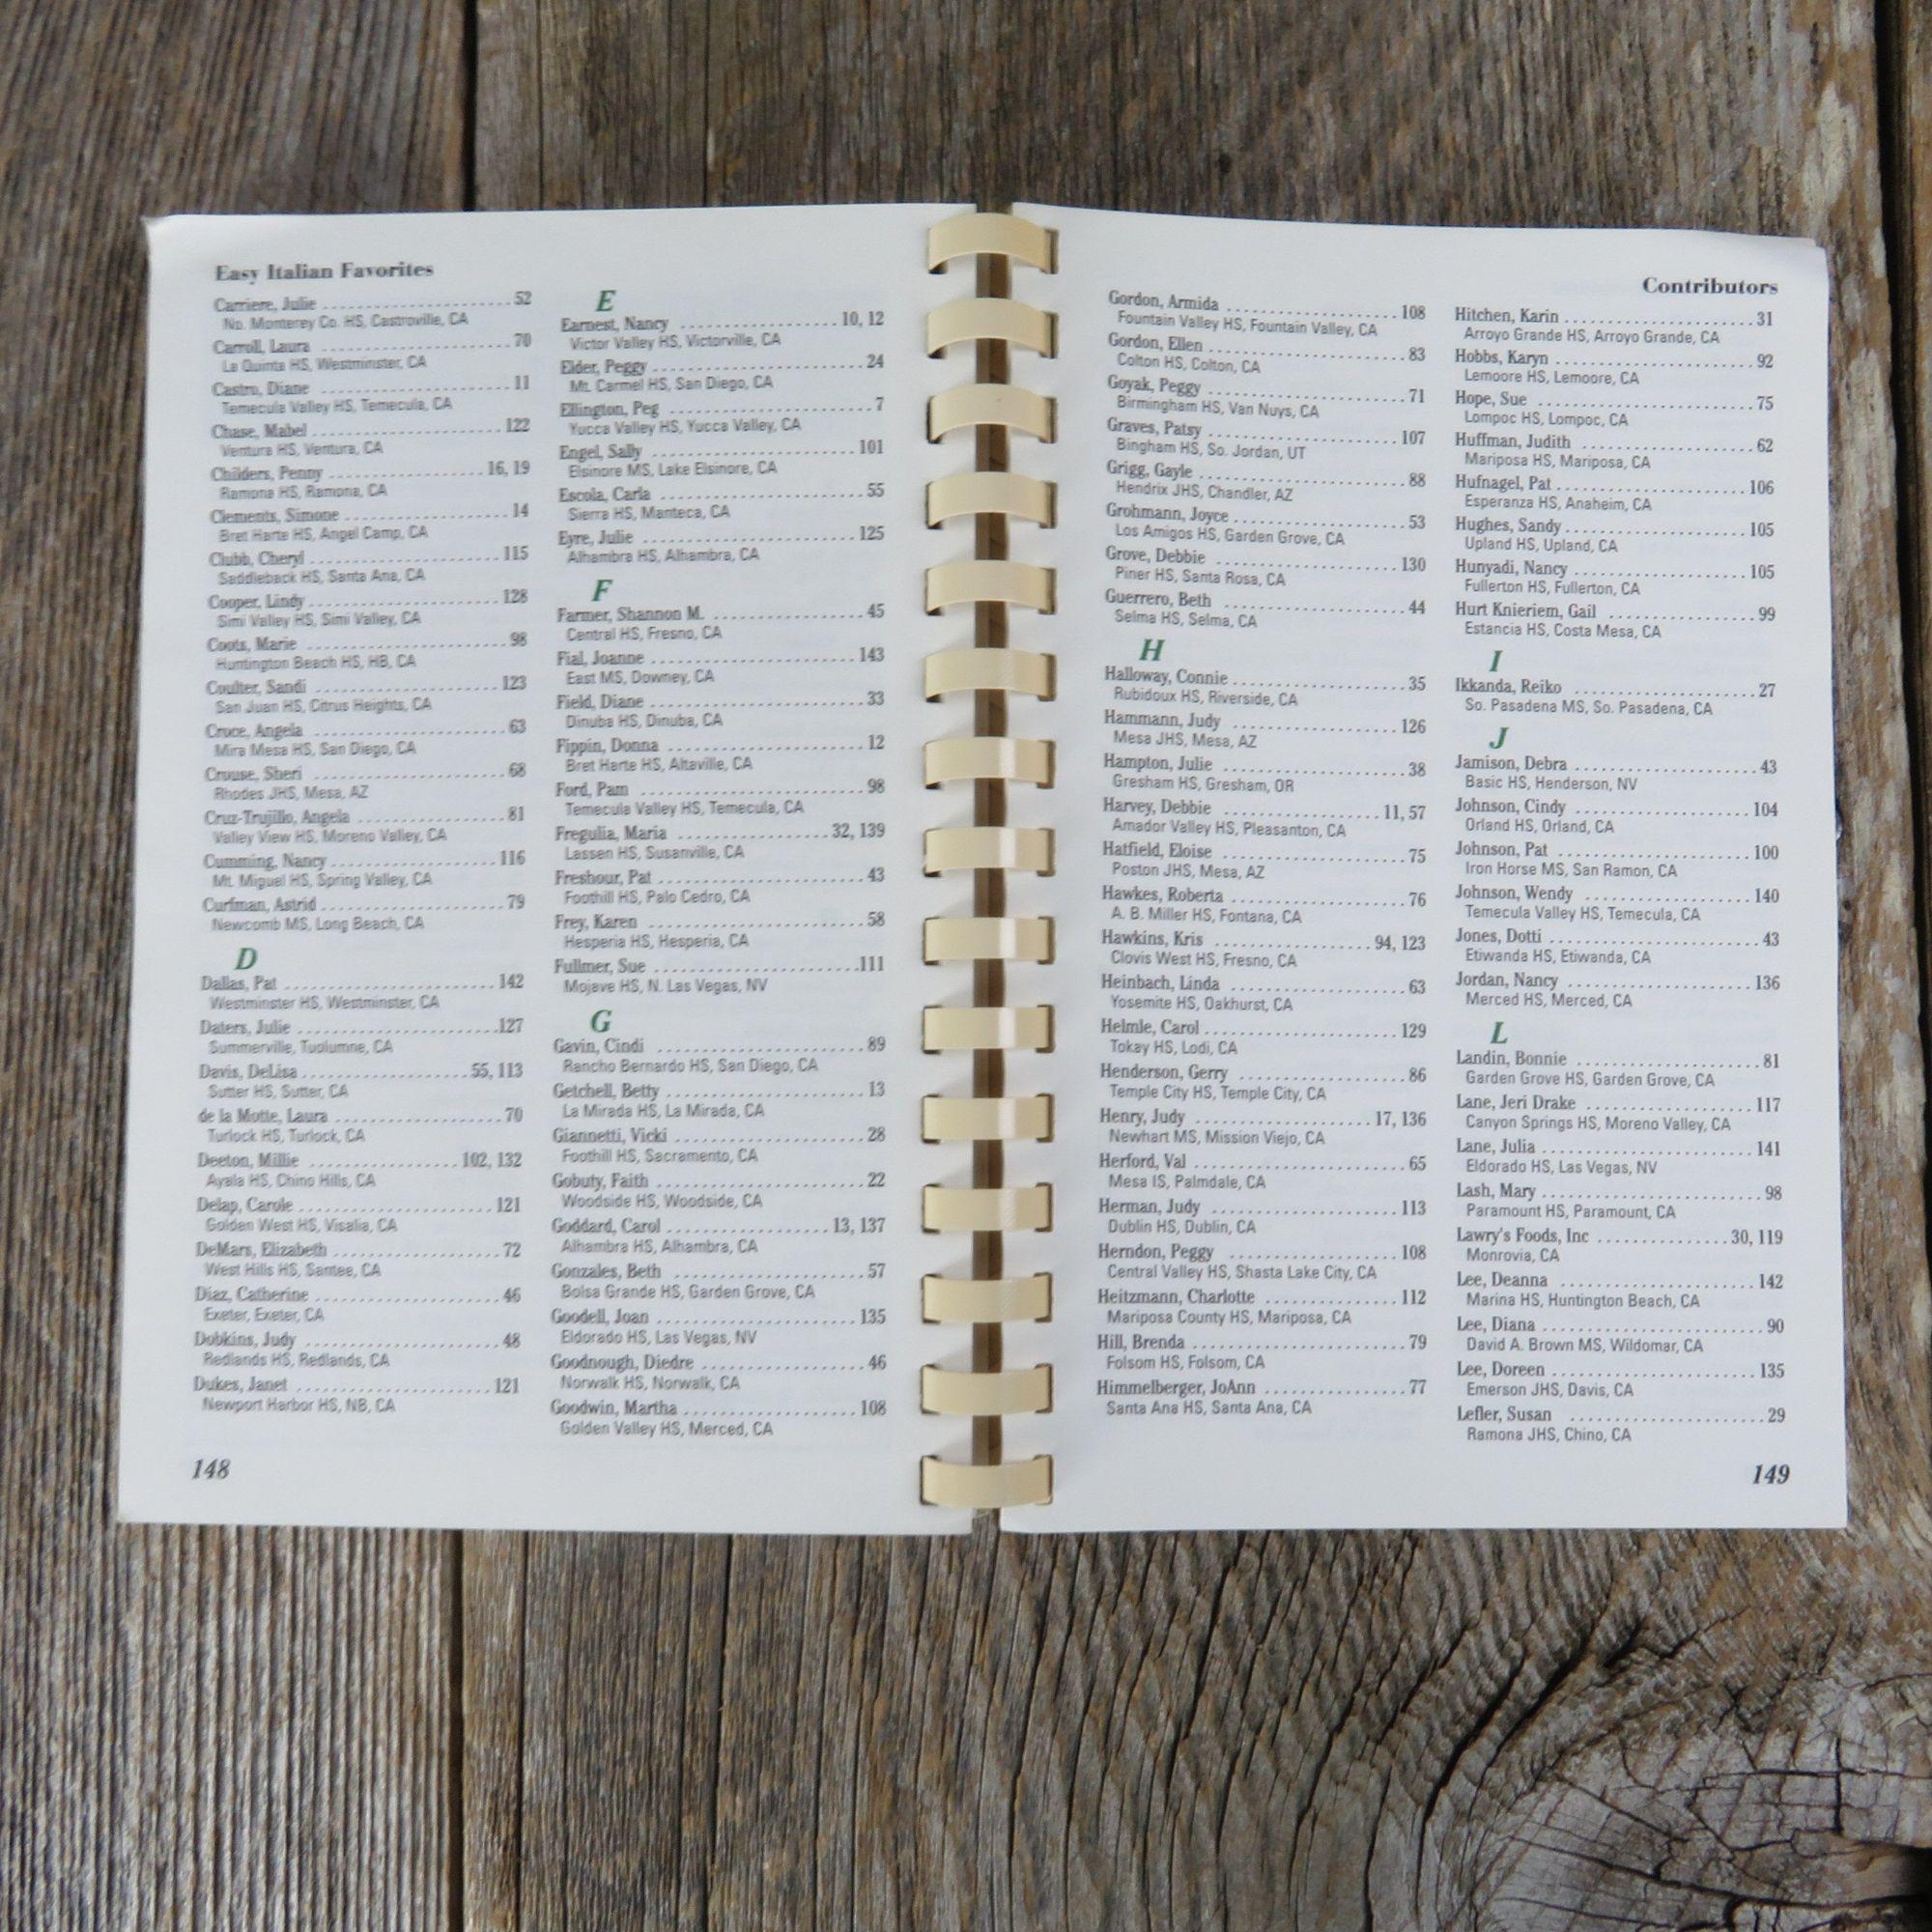 Easy Italian Favorites
Carriere, Julie ........................ 52
No. Monterey Co. HS, Castroville, CA
Carroll, Laura ........................ 70
La Quinta HS, Westminster, CA
Castro, Diane ........................ 11
Temecula Valley HS, Temecula, CA
Chase, Mabel ........................ 122
Ventura HS, Ventura, CA
Childers, Penny ........................ 16, 19
Ramona HS, Ramona, CA
Clements, Simone ........................ 14
Bret Harte HS, Angel Camp, CA
Clubb, Cheryl ........................ 115
Saddleback HS, Santa Ana, CA
Cooper, Lindy ........................ 128
Simi Valley HS, Simi Valley, CA
Coots, Marie ........................ 98
Huntington Beach HS, HB, CA
Coulter, Sandi ........................ 123
San Juan HS, Citrus Heights, CA
Croce, Angela ........................ 63
Mira Mesa HS, San Diego, CA
Crouse, Sheri ........................ 68
Rhodes JHS, Mesa, AZ
Cruz-Trujillo, Angela ........................ 81
Valley View HS, Moreno Valley, CA
Cumming, Nancy ........................ 116
Mt. Miguel HS, Spring Valley, CA
Curfman, Astrid ........................ 79
Newcomb MS, Long Beach, CA
D
Dallas, Pat ........................ 142
Westminster HS, Westminster, CA
Daters, Julie ........................ 127
Summerville, Tuolumne, CA
Davis, DeLisa ........................ 55, 113
Sutter HS, Sutter, CA
de la Motte, Laura ........................ 70
Turlock HS, Turlock, CA
Deeton, Millie ........................ 102, 132
Ayala HS, Chino Hills, CA
Delap, Carole ........................ 121
Golden West HS, Visalia, CA
DeMars, Elizabeth ........................ 72
West Hills HS, Santee, CA
Diaz, Catherine ........................ 46
Exeter, Exeter, CA
Dobkins, Judy ........................ 48
Redlands HS, Redlands, CA
Dukes, Janet ........................ 121
Newport Harbor HS, NB, CA
148
E
Earnest, Nancy ........................ 10, 12
Victor Valley HS, Victorville, CA
Elder, Peggy ........................ 24
Mt. Carmel HS, San Diego, CA
Ellington, Peg ........................ 7
Yucca Valley HS, Yucca Valley, CA
Engel, Sally ........................ 101
Elsinore MS, Lake Elsinore, CA
Escola, Carla ........................ 55
Sierra HS, Manteca, CA
Eyre, Julie ........................ 125
Alhambra HS, Alhambra, CA
F
Farmer, Shannon M. ........................ 45
Central HS, Fresno, CA
Fial, Joanne ........................ 143
East MS, Downey, CA
Field, Diane ........................ 33
Dinuba HS, Dinuba, CA
Fippin, Donna ........................ 12
Bret Harte HS, Altaville, CA
Ford, Pam ........................ 98
Temecula Valley HS, Temecula, CA
Fregulia, Maria ........................ 32, 139
Lassen HS, Susanville, CA
Freshour, Pat ........................ 43
Foothill HS, Palo Cedro, CA
Frey, Karen ........................ 58
Hesperia HS, Hesperia, CA
Fullmer, Sue ........................ 111
Mojave HS, N. Las Vegas, NV
G
Gavin, Cindi ........................ 89
Rancho Bernardo HS, San Diego, CA
Getchell, Betty ........................ 13
La Mirada HS, La Mirada, CA
Giannetti, Vicki ........................ 28
Foothill HS, Sacramento, CA
Gobuty, Faith ........................ 22
Woodside HS, Woodside, CA
Goddard, Carol ........................ 13, 137
Alhambra HS, Alhambra, CA
Gonzales, Beth ........................ 57
Bolsa Grande HS, Garden Grove, CA
Goodell, Joan ........................ 135
Eldorado HS, Las Vegas, NV
Goodnough, Diedre ........................ 46
Norwalk HS, Norwalk, CA
Goodwin, Martha ........................ 108
Golden Valley HS, Merced, CA
Contributors
Gordon, Armida ........................ 108
Fountain Valley HS, Fountain Valley, CA
Gordon, Ellen ........................ 83
Colton HS, Colton, CA
Goyak, Peggy ........................ 71
Birmingham HS, Van Nuys, CA
Graves, Patsy ........................ 107
Bingham HS, So. Jordan, UT
Grigg, Gayle ........................ 88
Hendrix JHS, Chandler, AZ
Grohmann, Joyce ........................ 53
Los Amigos HS, Garden Grove, CA
Grove, Debbie ........................ 130
Piner HS, Santa Rosa, CA
Guerrero, Beth ........................ 44
Selma HS, Selma, CA
H
Halloway, Connie ........................ 35
Rubidoux HS, Riverside, CA
Hammann, Judy ........................ 126
Mesa JHS, Mesa, AZ
Hampton, Julie ........................ 38
Gresham HS, Gresham, OR
Harvey, Debbie ........................ 11, 57
Amador Valley HS, Pleasanton, CA
Hatfield, Eloise ........................ 75
Poston JHS, Mesa, AZ
Hawkes, Roberta ........................ 76
A. B. Miller HS, Fontana, CA
Hawkins, Kris ........................ 94, 123
Clovis West HS, Fresno, CA
Heinbach, Linda ........................ 63
Yosemite HS, Oakhurst, CA
Helmle, Carol ........................ 129
Tokay HS, Lodi, CA
Henderson, Gerry ........................ 86
Temple City HS, Temple City, CA
Henry, Judy ........................ 17, 136
Newhart MS, Mission Viejo, CA
Herford, Val ........................ 65
Mesa IS, Palmdale, CA
Herman, Judy ........................ 113
Dublin HS, Dublin, CA
Herndon, Peggy ........................ 108
Central Valley HS, Shasta Lake City, CA
Heitzmann, Charlotte ........................ 112
Mariposa County HS, Mariposa, CA
Hill, Brenda ........................ 79
Folsom HS, Folsom, CA
Himmelberger, JoAnn ........................ 77
Santa Ana HS, Santa Ana, CA
Hitchen, Karin ........................ 31
Arroyo Grande HS, Arroyo Grande, CA
Hobbs, Karyn ........................ 92
Lemoore HS, Lemoore, CA
Hope, Sue ........................ 75
Lompoc HS, Lompoc, CA
Huffman, Judith ........................ 62
Mariposa HS, Mariposa, CA
Hufnagel, Pat ........................ 106
Esperanza HS, Anaheim, CA
Hughes, Sandy ........................ 105
Upland HS, Upland, CA
Hunyadi, Nancy ........................ 105
Fullerton HS, Fullerton, CA
Hurt Knieriem, Gail ........................ 99
Estancia HS, Costa Mesa, CA
I
Ikkanda, Reiko ........................ 27
So. Pasadena MS, So. Pasadena, CA
J
Jamison, Debra ........................ 43
Basic HS, Henderson, NV
Johnson, Cindy ........................ 104
Orland HS, Orland, CA
Johnson, Pat ........................ 100
Iron Horse MS, San Ramon, CA
Johnson, Wendy ........................ 140
Temecula Valley HS, Temecula, CA
Jones, Dotti ........................ 43
Etiwanda HS, Etiwanda, CA
Jordan, Nancy ........................ 136
Merced HS, Merced, CA
L
Landin, Bonnie ........................ 81
Garden Grove HS, Garden Grove, CA
Lane, Jeri Drake ........................ 117
Canyon Springs HS, Moreno Valley, CA
Lane, Julia ........................ 141
Eldorado HS, Las Vegas, NV
Lash, Mary ........................ 98
Paramount HS, Paramount, CA
Lawry's Foods, Inc ........................ 30, 119
Monrovia, CA
Lee, Deanna ........................ 142
Marina HS, Huntington Beach, CA
Lee, Diana ........................ 90
David A. Brown MS, Wildomar, CA
Lee, Doreen ........................ 135
Emerson JHS, Davis, CA
Lefler, Susan ........................ 29
Ramona JHS, Chino, CA
149